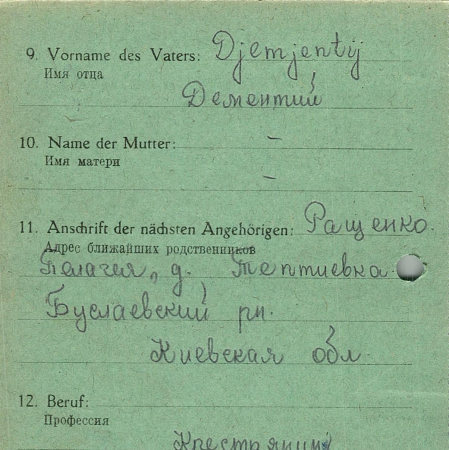 9. Vorname des Vaters: Djemjentij
Имя отца
Дементий
10. Name der Mutter: –
Имя матери
–
11. Anschrift der nächsten Angehörigen: Ращенко
Адрес ближайших родственников
Пелагия, д. Тептиевка
Буслаевский рн.
Киевская обл.
12. Beruf:
Профессия
Крестьянин